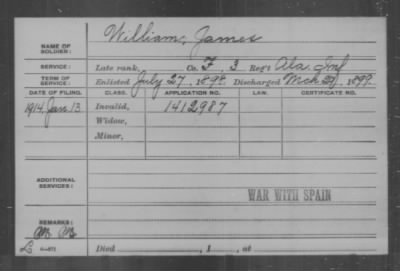 William, James
NAME OF SOLDIER:
SERVICE: Late rank, Co. F, 3 Reg't Ala. Inf
TERM OF SERVICE: Enlisted July 27, 1898. Discharged Mch 20, 1899.
DATE OF FILING. CLASS. APPLICATION NO. LAW. CERTIFICATE NO.
1914, Jan. 13 Invalid, 1412987
Widow,
Minor,
ADDITIONAL SERVICES:
WAR WITH SPAIN
REMARKS:
Died , 1 , at